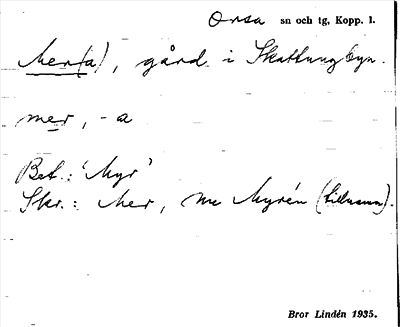 Orsa sn och tg, Kopp. l.
Mer(a), gård i Skattungbyn.
mer, -a
Bet.: 'Myr'
Skr.: Mer, nu Myrén (tillnamn).
Bror Lindén 1935.